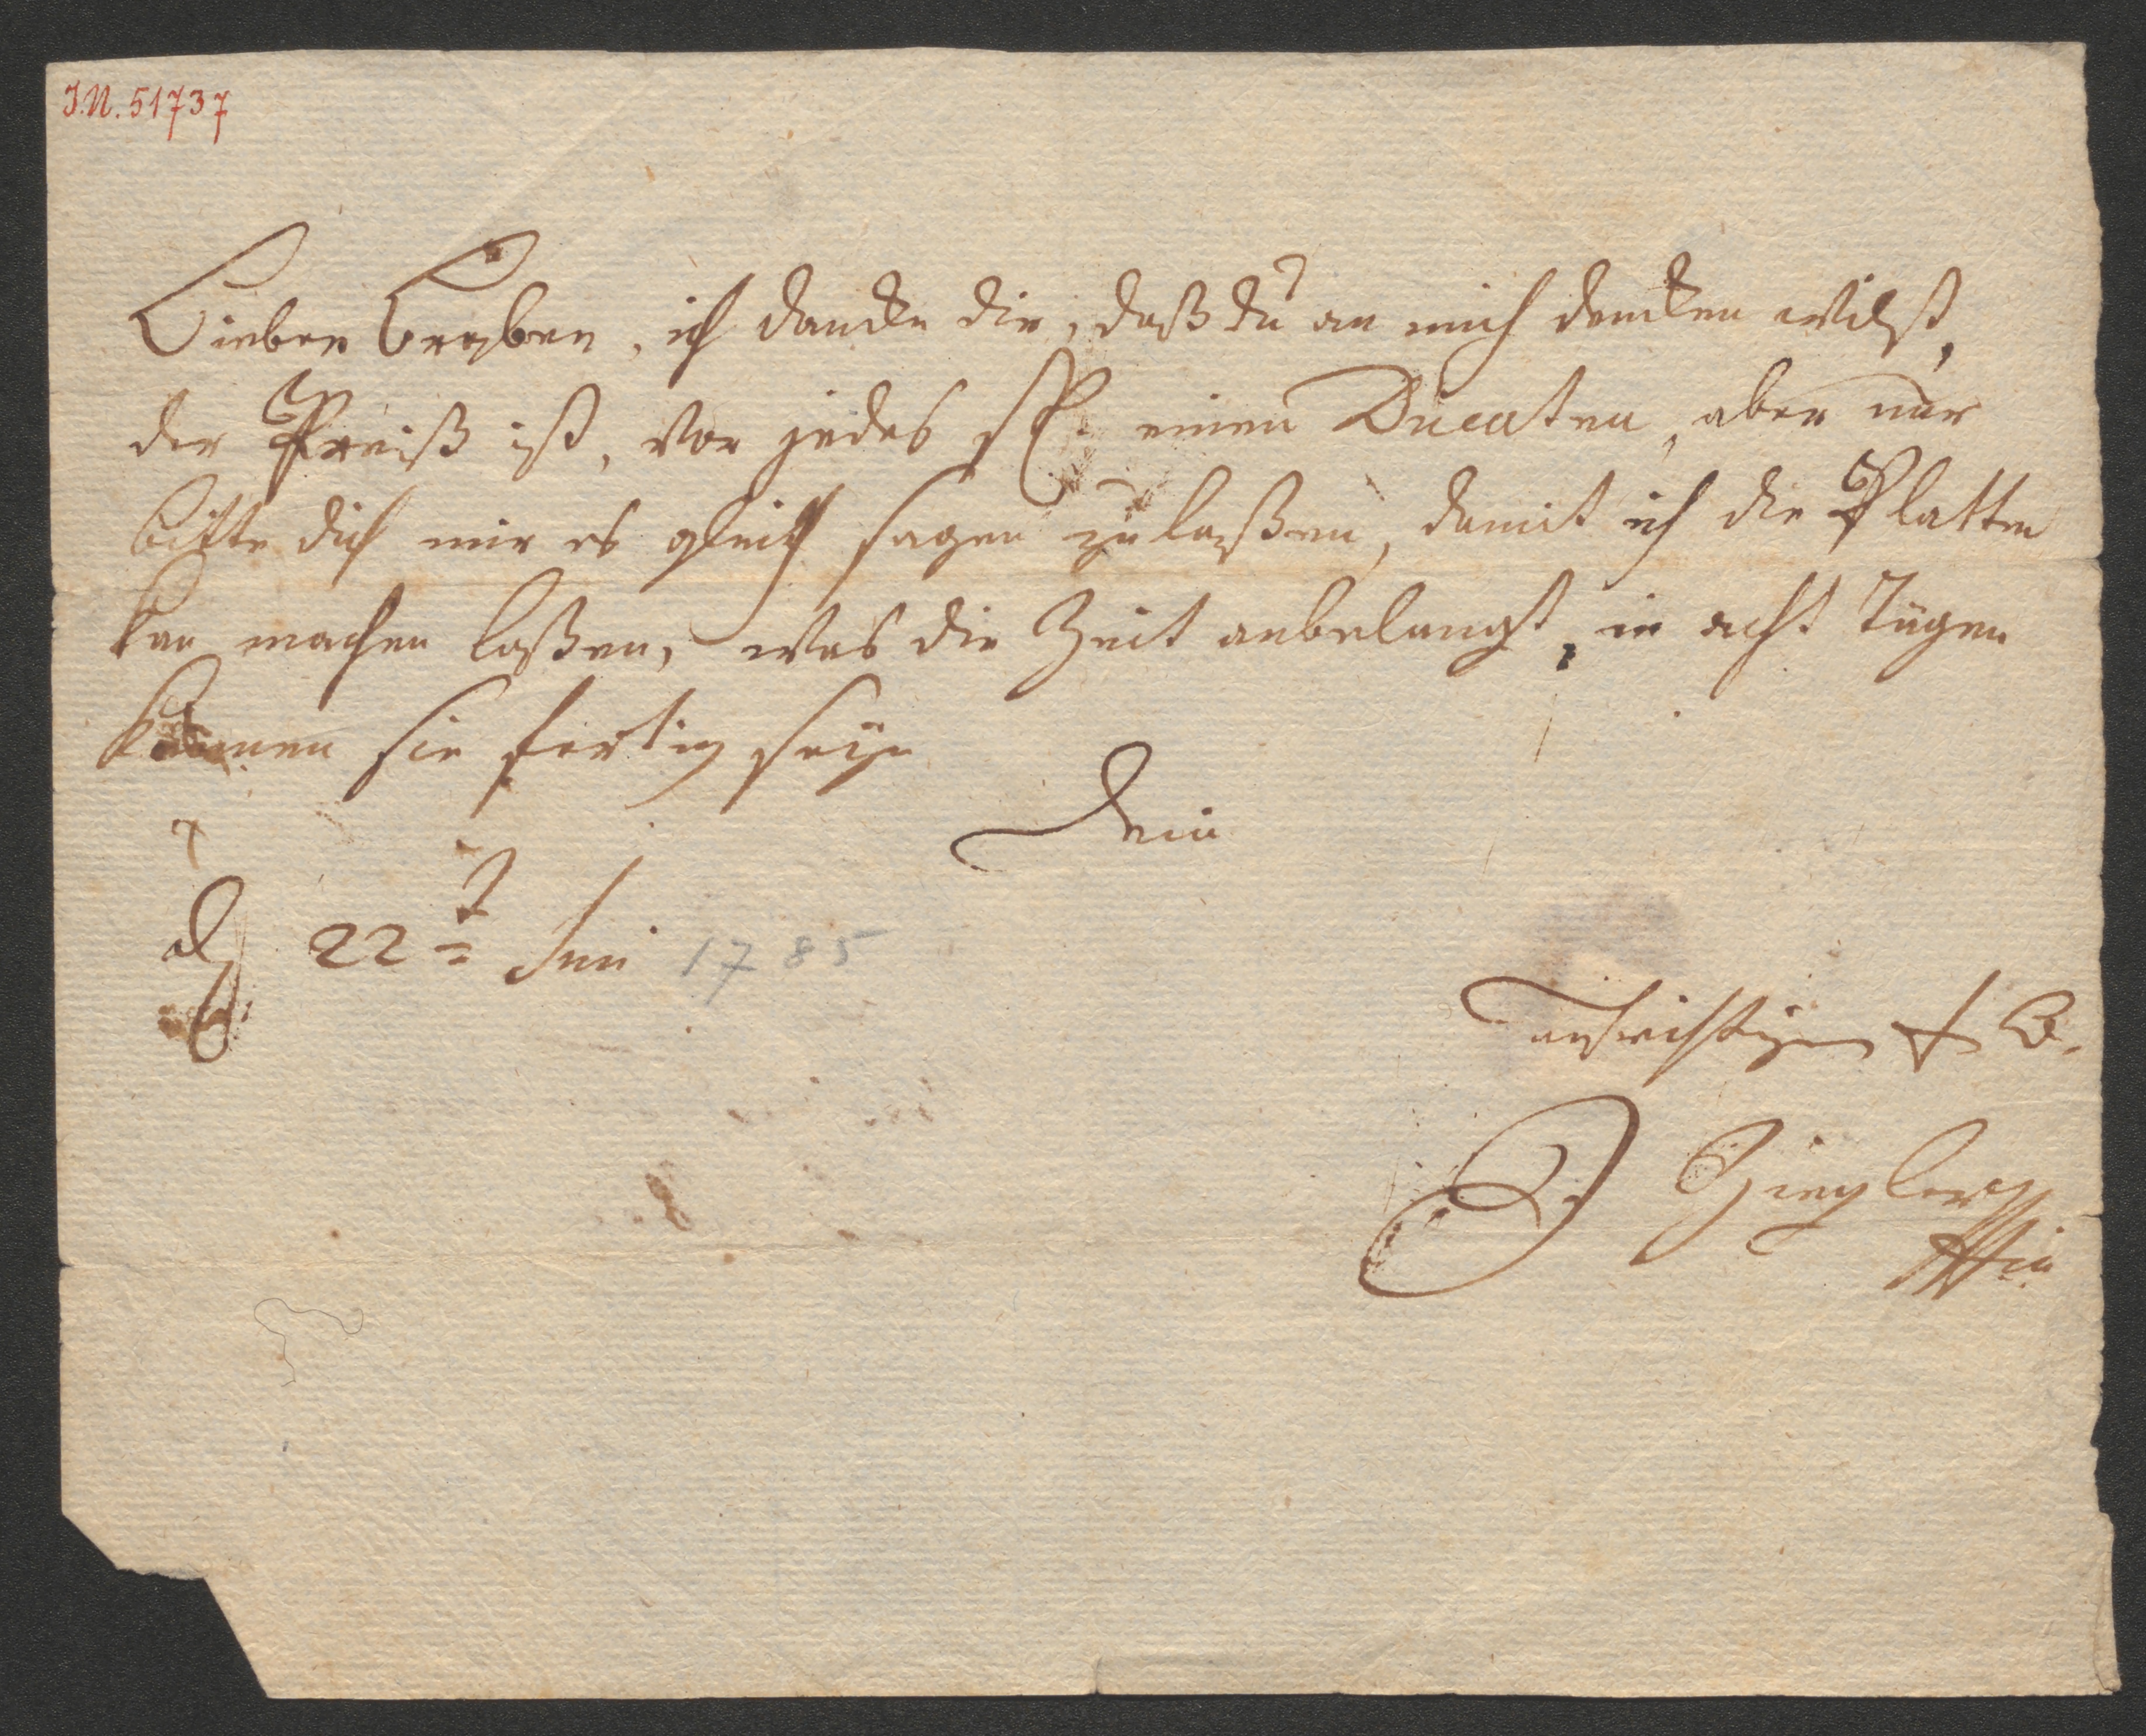 I.N. 51737
Lieber Bruder, ich dancke dir, daß du an mich dencken wilst,
der Preiß ist, vor jedes st. einen Ducaten, aber nur
bitte dich mir es gleich sagen zu laßen, damit ich die Platten
kan machen laßen, was die Zeit anbelangt, in acht Tägen
können sie fertig seyn
Dein
d 22t Juni 1785
aufrichtigen
Ziegler